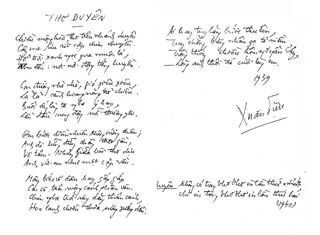 THƠ DUYÊN
Chiều mộng hoà thơ trên nhánh duyên
Cây me ríu rít cặp chim chuyền
Đổ trời xanh ngọc qua muôn lá,
Thu đến nơi nơi động tiếng huyền.
Con đường nhỏ nhỏ, gió xiêu xiêu
Lả lả cành hoang nắng trở chiều
Buổi ấy lòng ta nghe ý bạn,
Lần đầu rung động nỗi thương yêu.
Em bước điềm nhiên không vướng chân;
Anh đi lững đững chẳng theo gần,
Vô tâm - Nhưng giữa bài thơ dịu
Anh với em như một cặp vần.
Mây biếc về đâu bay gấp gấp
Con cò trên ruộng cánh phân vân.
Chim nghe trời rộng dang thêm cánh
Hoa lạnh chiều thưa sương xuống dần.
Ai hay tuy lặng bước thu êm,
Tuy chẳng băng nhân gạ tỏ niềm
Trông thấy chiều hôm ngơ ngẩn vậy,
Lòng anh thôi đã cưới lòng em.
Xuân Diệu